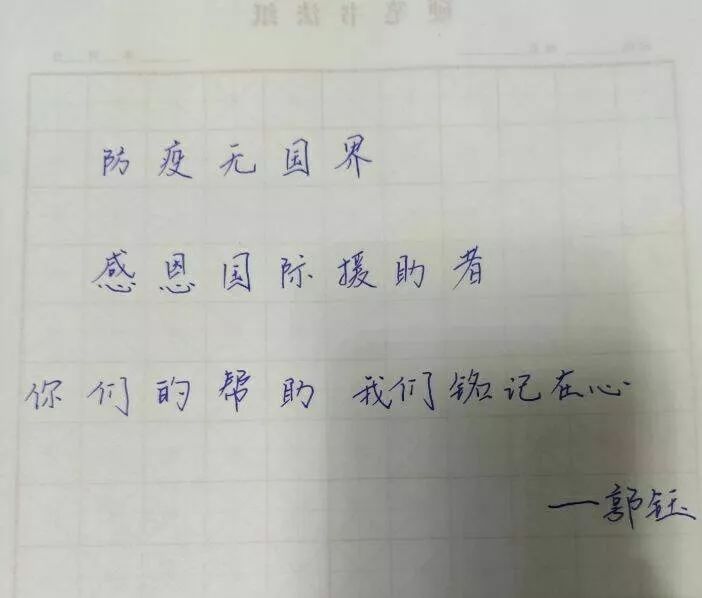 硬笔书法纸
防疫无国界
感恩国际援助者
你们的帮助 我们铭记在心
—郭钰